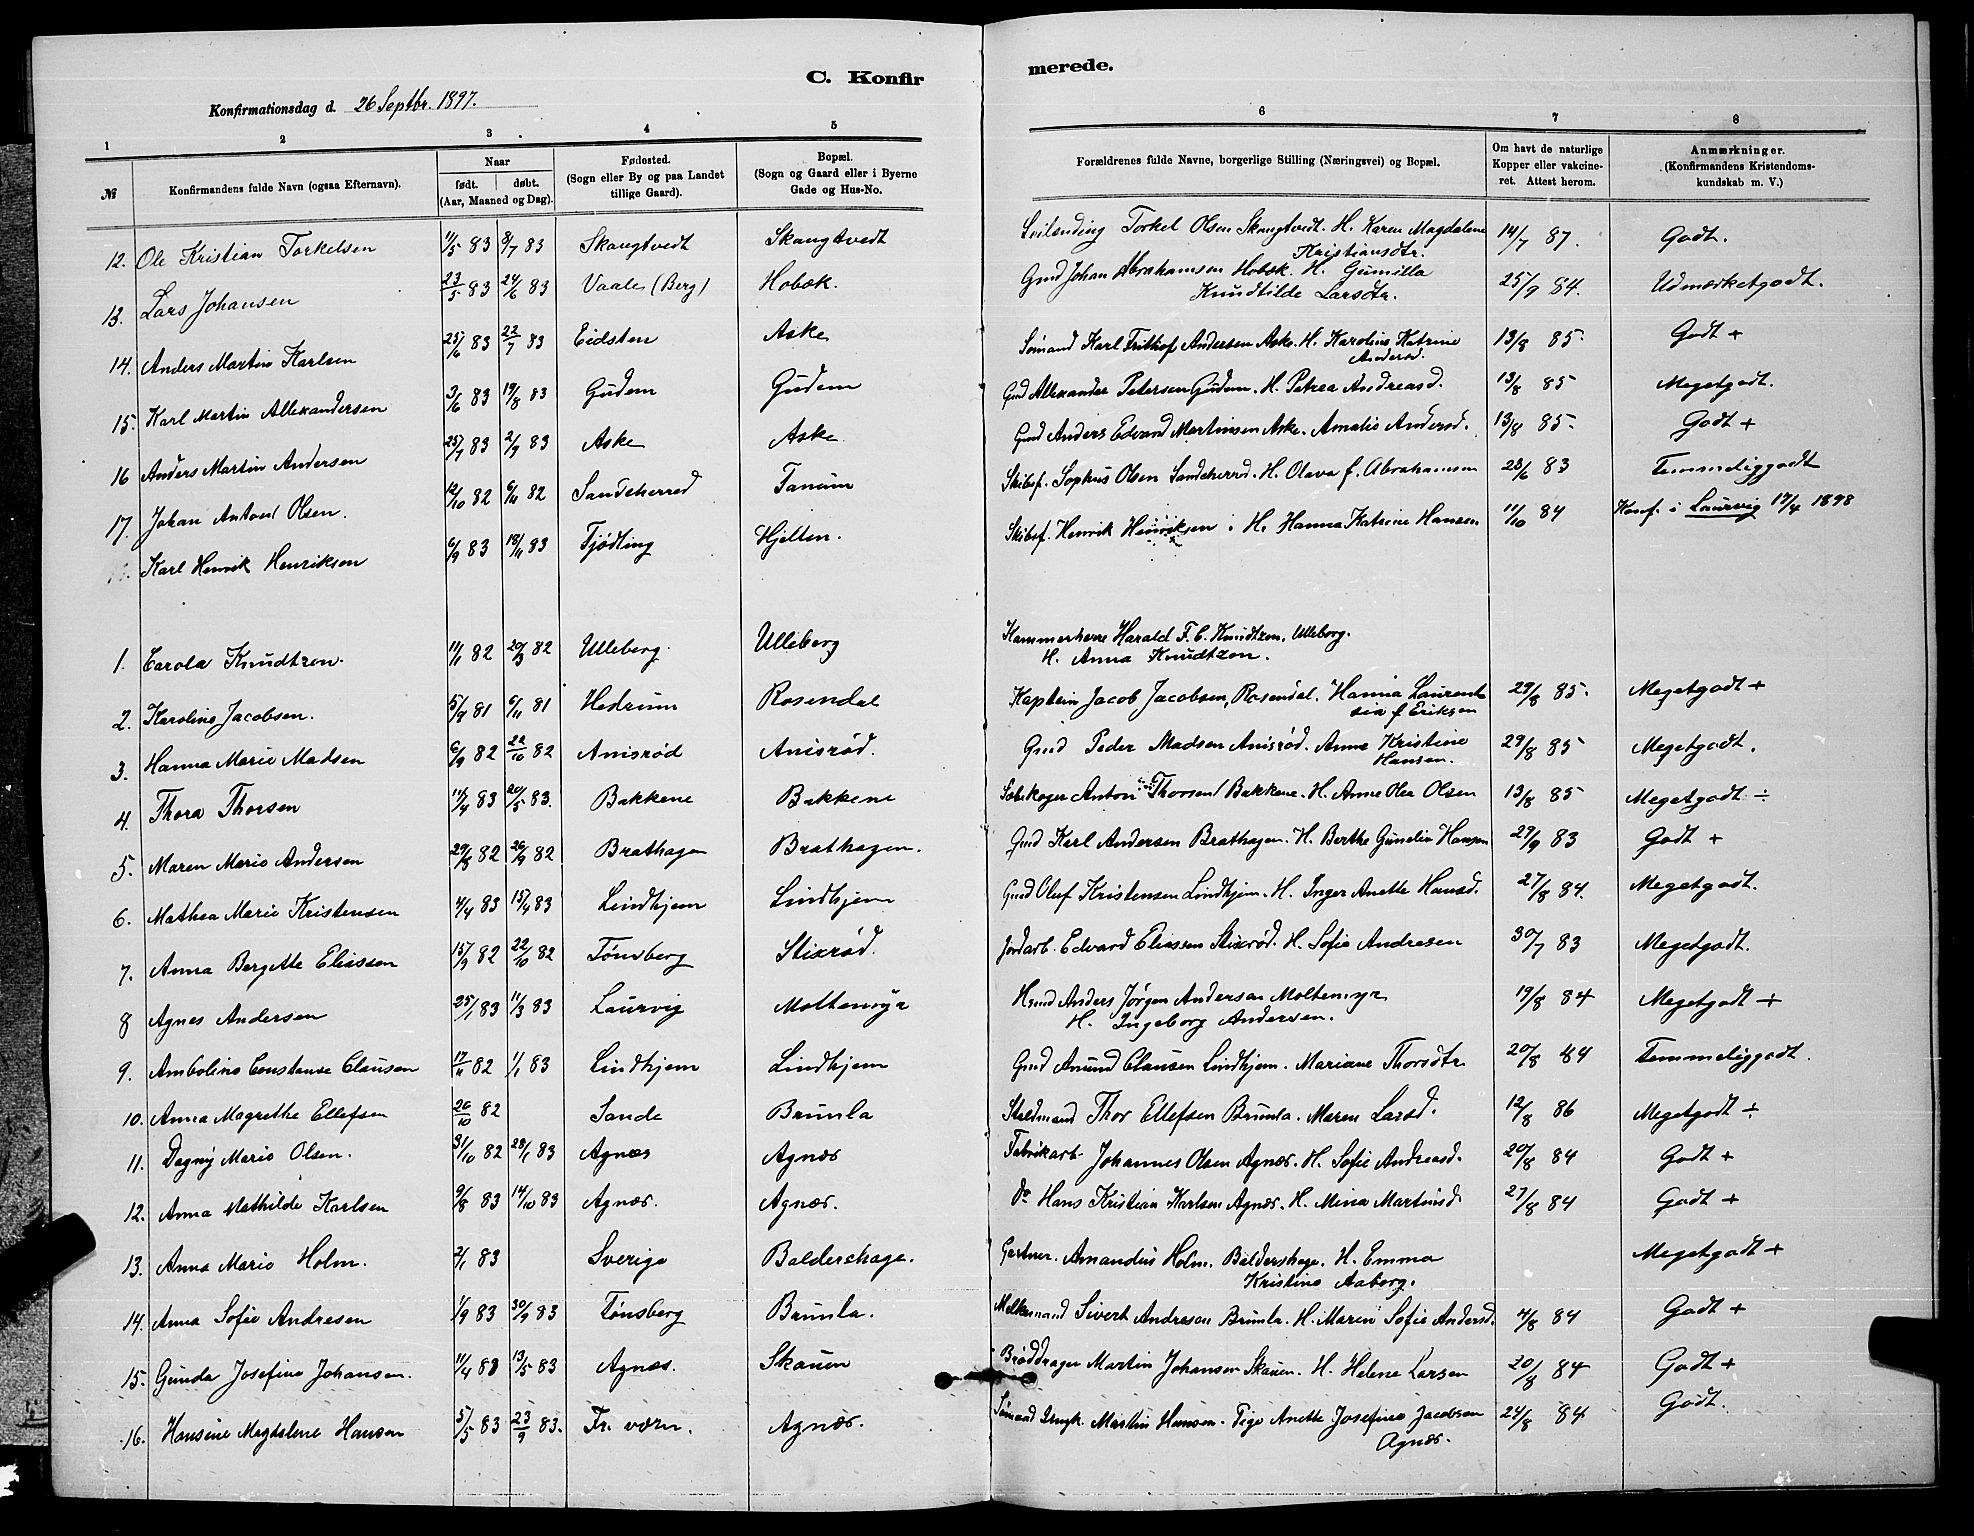 C. Konfir
merede.
Konfirmationsdag d. 26 Septbr. 1897.
1 2 3 4 5 6 7 8
№ Konfirmandens fulde Navn (ogsaa Efternavn). Naar født. døbt. (Aar, Maaned og Dag). Fødested. (Sogn eller By og paa Landet tillige Gaard). Bopæl. (Sogn og Gaard eller i Byerne Gade og Hus-No. Forældrenes fulde Navne, borgerlige Stilling (Næringsvei) og Bopæl. Om havt de naturlige Kopper eller vakcineret. Attest herom. Anmærkninger. (Konfirmandens Kristendomskundskab m. V.)
12. Ole Kristian Torkelsen 11/5 83 8/7 83 Skaugtvedt Skaugtvedt Torkel Olsen Skaugtvedt. H. Karen Magdalene Kristiansdtr. 14/7 87. Godt.
13. Lars Johansen 23/5 83 24/6 83 Vaale (Berg) Hobæk. Gmd Johan Abrahamsen Hobæk. H. Gunnilla Knudtilde Larsdtr. 25/9 84. Udmærketgodt.
14. Anders Martin Karlsen 25/6 83 22/7 83 Eidsten Aske Sømand Karl Frithof Andersen Aske. H. Karoline Katrine Andersd. 13/8 85. Godt +
15. Karl Martin Allexandersen 3/6 83 19/8 83 Gudem Gudem Gmd Allexander Petersen Gudem. H. Petrea Andreasd. 13/8 85 Megetgodt.
16 Anders Martin Andersen 25/7 83 2/9 83 Aske Aske Gmd Anders Edvard Martinsen Aske. Amalie Andersd. 13/8 85. Godt +
17. Johan Anton Olsen. 12/10 82 6/11 82 Sandeherred Tanum Skibsf. Sophus Olsen Sandeherred. H. Olava f. Abrahamsen 28/6 83 Temmeliggodt
Karl Henrik Henriksen 6/9 83 18/11 83 Tjødling Hjelten. Skibsf. Henrik Henriksen i H. Hanna Katrine Hansen 11/10 84 Konf. i Laurvig 17/4 1898
1. Carola Knudtzen. 11/1 82 20/3 82 Ulleberg. Ulleberg Kammerherre Harald F. C. Knudtzen, Ulleberg. H. Anna Knudtzen.
2. Karoline Jacobsen. 5/9 81 6/11 81 Hedrum Rosendal Kaptein Jacob Jacobsen, Rosendal. Hanna Laurentsia f Eriksen 29/8 85. Megetgodt +
3. Hanna Marie Madsen 6/9 82 22/10 82 Anisrød Anisrød. Gmd Peder Madsen Anisrød. Anne Kristine Hansen. 29/8 85 Megetgodt.
4. Thora Thorsen 14/4 83 20/5 83. Bakkene Bakkene Anton Thorsen Bakkene. H. Anne Olea Olsen 13/8 85 Megetgodt ÷
5. Maren Marie Andersen 29/8 82 26/9 82 Brathagen Brathagen. Gmd Karl Andersen Brathagen. H. Berthe Gunelia Hansen 29/9 83 Godt +
6. Mathea Marie Kristensen 4/4 83 15/4 83 Lindhjem Lindhjem Gmd Oluf Kristensen Lindhjem. H. Inger Anette Hansd. 27/8 84. Megetgodt.
7. Anna Bergette Eliassen 15/9 82 22/10 82 Tønsberg Stixrød. Jordarb. Edvard Eliassen Stixrød. H. Sofie Andresen 30/7 83 Megetgodt.
8 Agnes Andersen 25/1 83 11/3 83 Laurvig Moltemyr Hmd Anders Jørgen Andersen Moltemyr H. Ingeborg Andersen. 19/8 84 Megetgodt +
9. Amboline Constanse Clausen 17/11 82 1/1 83 Lindhjem Lindhjem Gmd Amund Clausen Lindhjem. Mariane Thorsdtr 20/8 84 Temmeliggodt.
10. Anna Magrethe Ellefsen 26/10 82 Sande Brunla Staldmand Thor Ellefsen Brunla. Maren Larsd. 12/8 86 Megetgodt ÷
11. Dagny Marie Olsen. 31/10 82 28/1 83 Agnæs Agnæs Fabrikarb. Johannes Olsen Agnæs. H. Sofie Andreasd. 20/8 84 Godt +
12. Anna Mathilde Karlsen 9/8 83 14/10 83 Agnæs. Agnæs. do Hans Kristian Karlsen Agnæs. H. Mina Martinsd. 27/8 84 Godt +
13. Anna Marie Holm. 2/1 83 Sverige Baldershage. Gartner. Amandus Holm. Baldershage. H. Emma Kristine Aaberg. Megetgodt +
14. Anna Sofie Andresen 1/9 83 30/9 83 Tønsberg Brunla. Melkemand Sivert Andresen Brunla. H. Maren Sofie Andersd. 4/8 84 Godt +
15. Gunda Josefine Johansen. 11/4 83 13/5 83 Agnæs. Skauen Brøddrager Martin Johansen Skauen. H. Helene Larsen 20/8 84 Godt +
16. Hansine Magdalene Hansen 5/5 83 23/9 83. Fr. værn. Agnæs. Sømand Martin Hansen. Pige Anette Josefine Jacobsen Agnæs. 24/8 84 Godt.